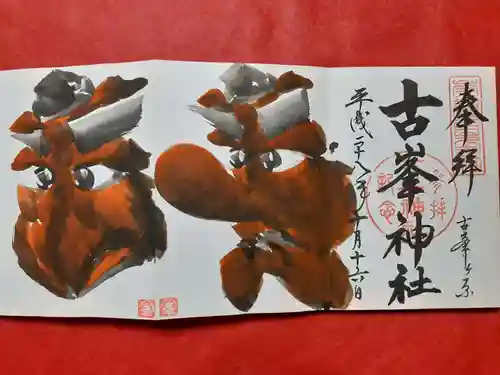 奉拝
古峯ヶ原
古峯神社
平成二十八年十月十六日